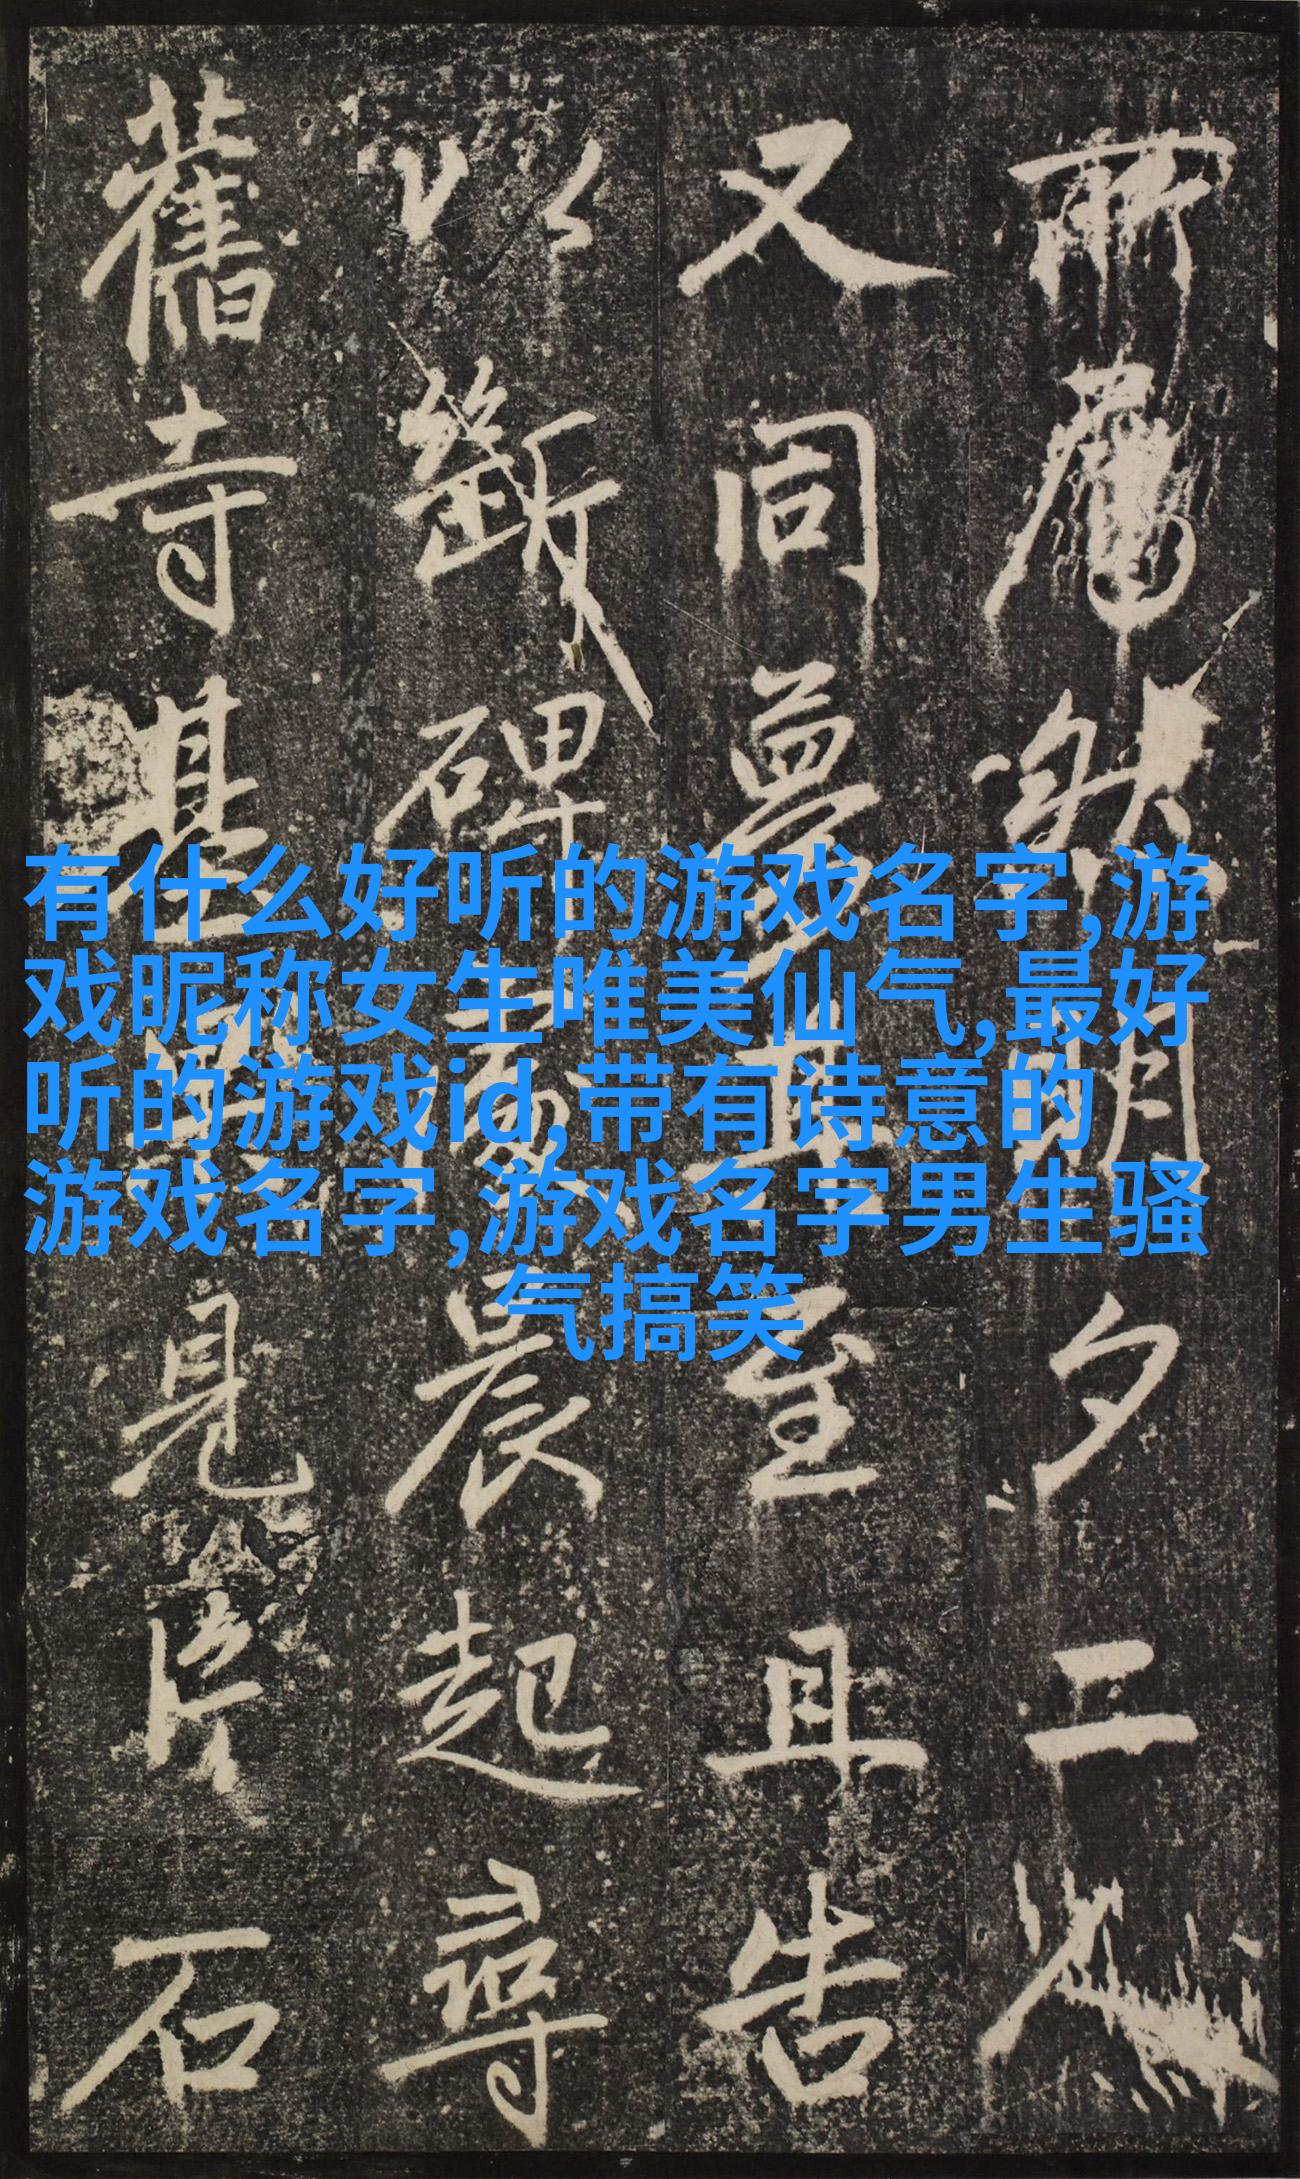 明夕二
又同夢至且告
以斷碑晨起尋
舊寺基見片石
有什么好听的游戏名字,游
戏昵称女生唯美仙气,最好
听的游戏id,带有诗意的
游戏名字,游戏名字男生骚
气搞笑